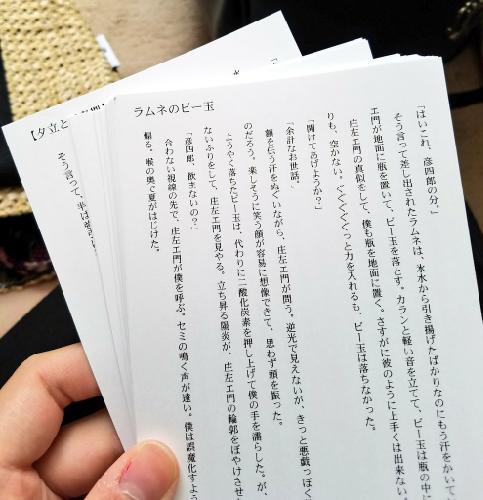 ラムネのビー玉
「はいこれ、彦四郎の分。」
そう言って差し出されたラムネは、氷水から引き揚げたばかりなのにもう汗をかいて
エ門が地面に瓶を置いて、ビー玉を落とす。カランと軽い音を立てて、ビー玉は瓶の中
庄左エ門の真似をして、僕も瓶を地面に置く。さすがに彼のように上手くは出来ない。
りも、空かない。ぐぐぐぐっと力を入れるも、ビー玉は落ちなかった。
「開けてあげようか?」
「余計なお世話。」
額を伝う汗をぬぐいながら、庄左エ門が問う。逆光で見えないが、きっと悪戯っぽく
のだろう。楽しそうに笑う顔が容易に想像できて、思わず頭を振った。
ようやく落ちたビー玉は、代わりに二酸化炭素を押し上げて僕の手を濡らした。が、
ないふりをして、庄左エ門を見やる。立ち昇る陽炎が、庄左エ門の輪郭をぼやけさせ
「彦四郎、飲まないの?」
合わない視線の先で、庄左エ門が僕を呼ぶ。セミの鳴く声が遠い。僕は誤魔化すよう
煽る。喉の奥で夏がはじけた。
【夕立と
そう言って、半ば